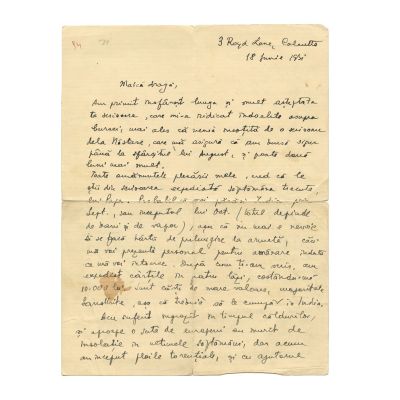 3 Royd Lane, Calcutta
18 Iunie 1931
Maică dragă,
Am primit mult lunga și mult așteptata
ta scrisoare, care mi-a ridicat îndoielile asupra
bursei; mai ales că venea însoțită de o scrisoare
dela Nestora, care mă asigură că am bursă sigur
până la sfârșitul lui August, și poate două
luni mai mult.
Toate amănuntele plecării mele, cred că le
știi din scrisoarea expediată săptămâna trecută,
lui Papa. Probabil a voi părăsi India prin
Sept., sau începutul lui Oct. (totul depinde
de bani și de vapor), așa că nu mai e nevoie
să se facă hârtii de prelungire la armată, căci
mă voi prezenta personal pentru amânare îndată
ce mă voi întoarce. După cum ți-am scris, am
expediat cărțile în patru lăzi, costându-mi
10.000 lei sunt cărți de mare valoare, majoritatea
sanscrite, așa că trebuia să le cumpăr în India.
Am suferit îngrozit în timpul căldurilor,
și aproape o sută de europeni au murit de
insolație în ultimele săptămâni; dar acum
au început ploile torențiale, și cu ajutorul